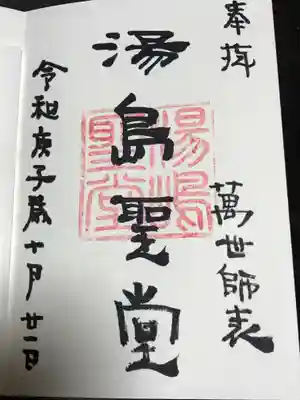 奉拝
萬世師表
湯島聖堂
湯島聖堂
令和庚子歳十月廿一日